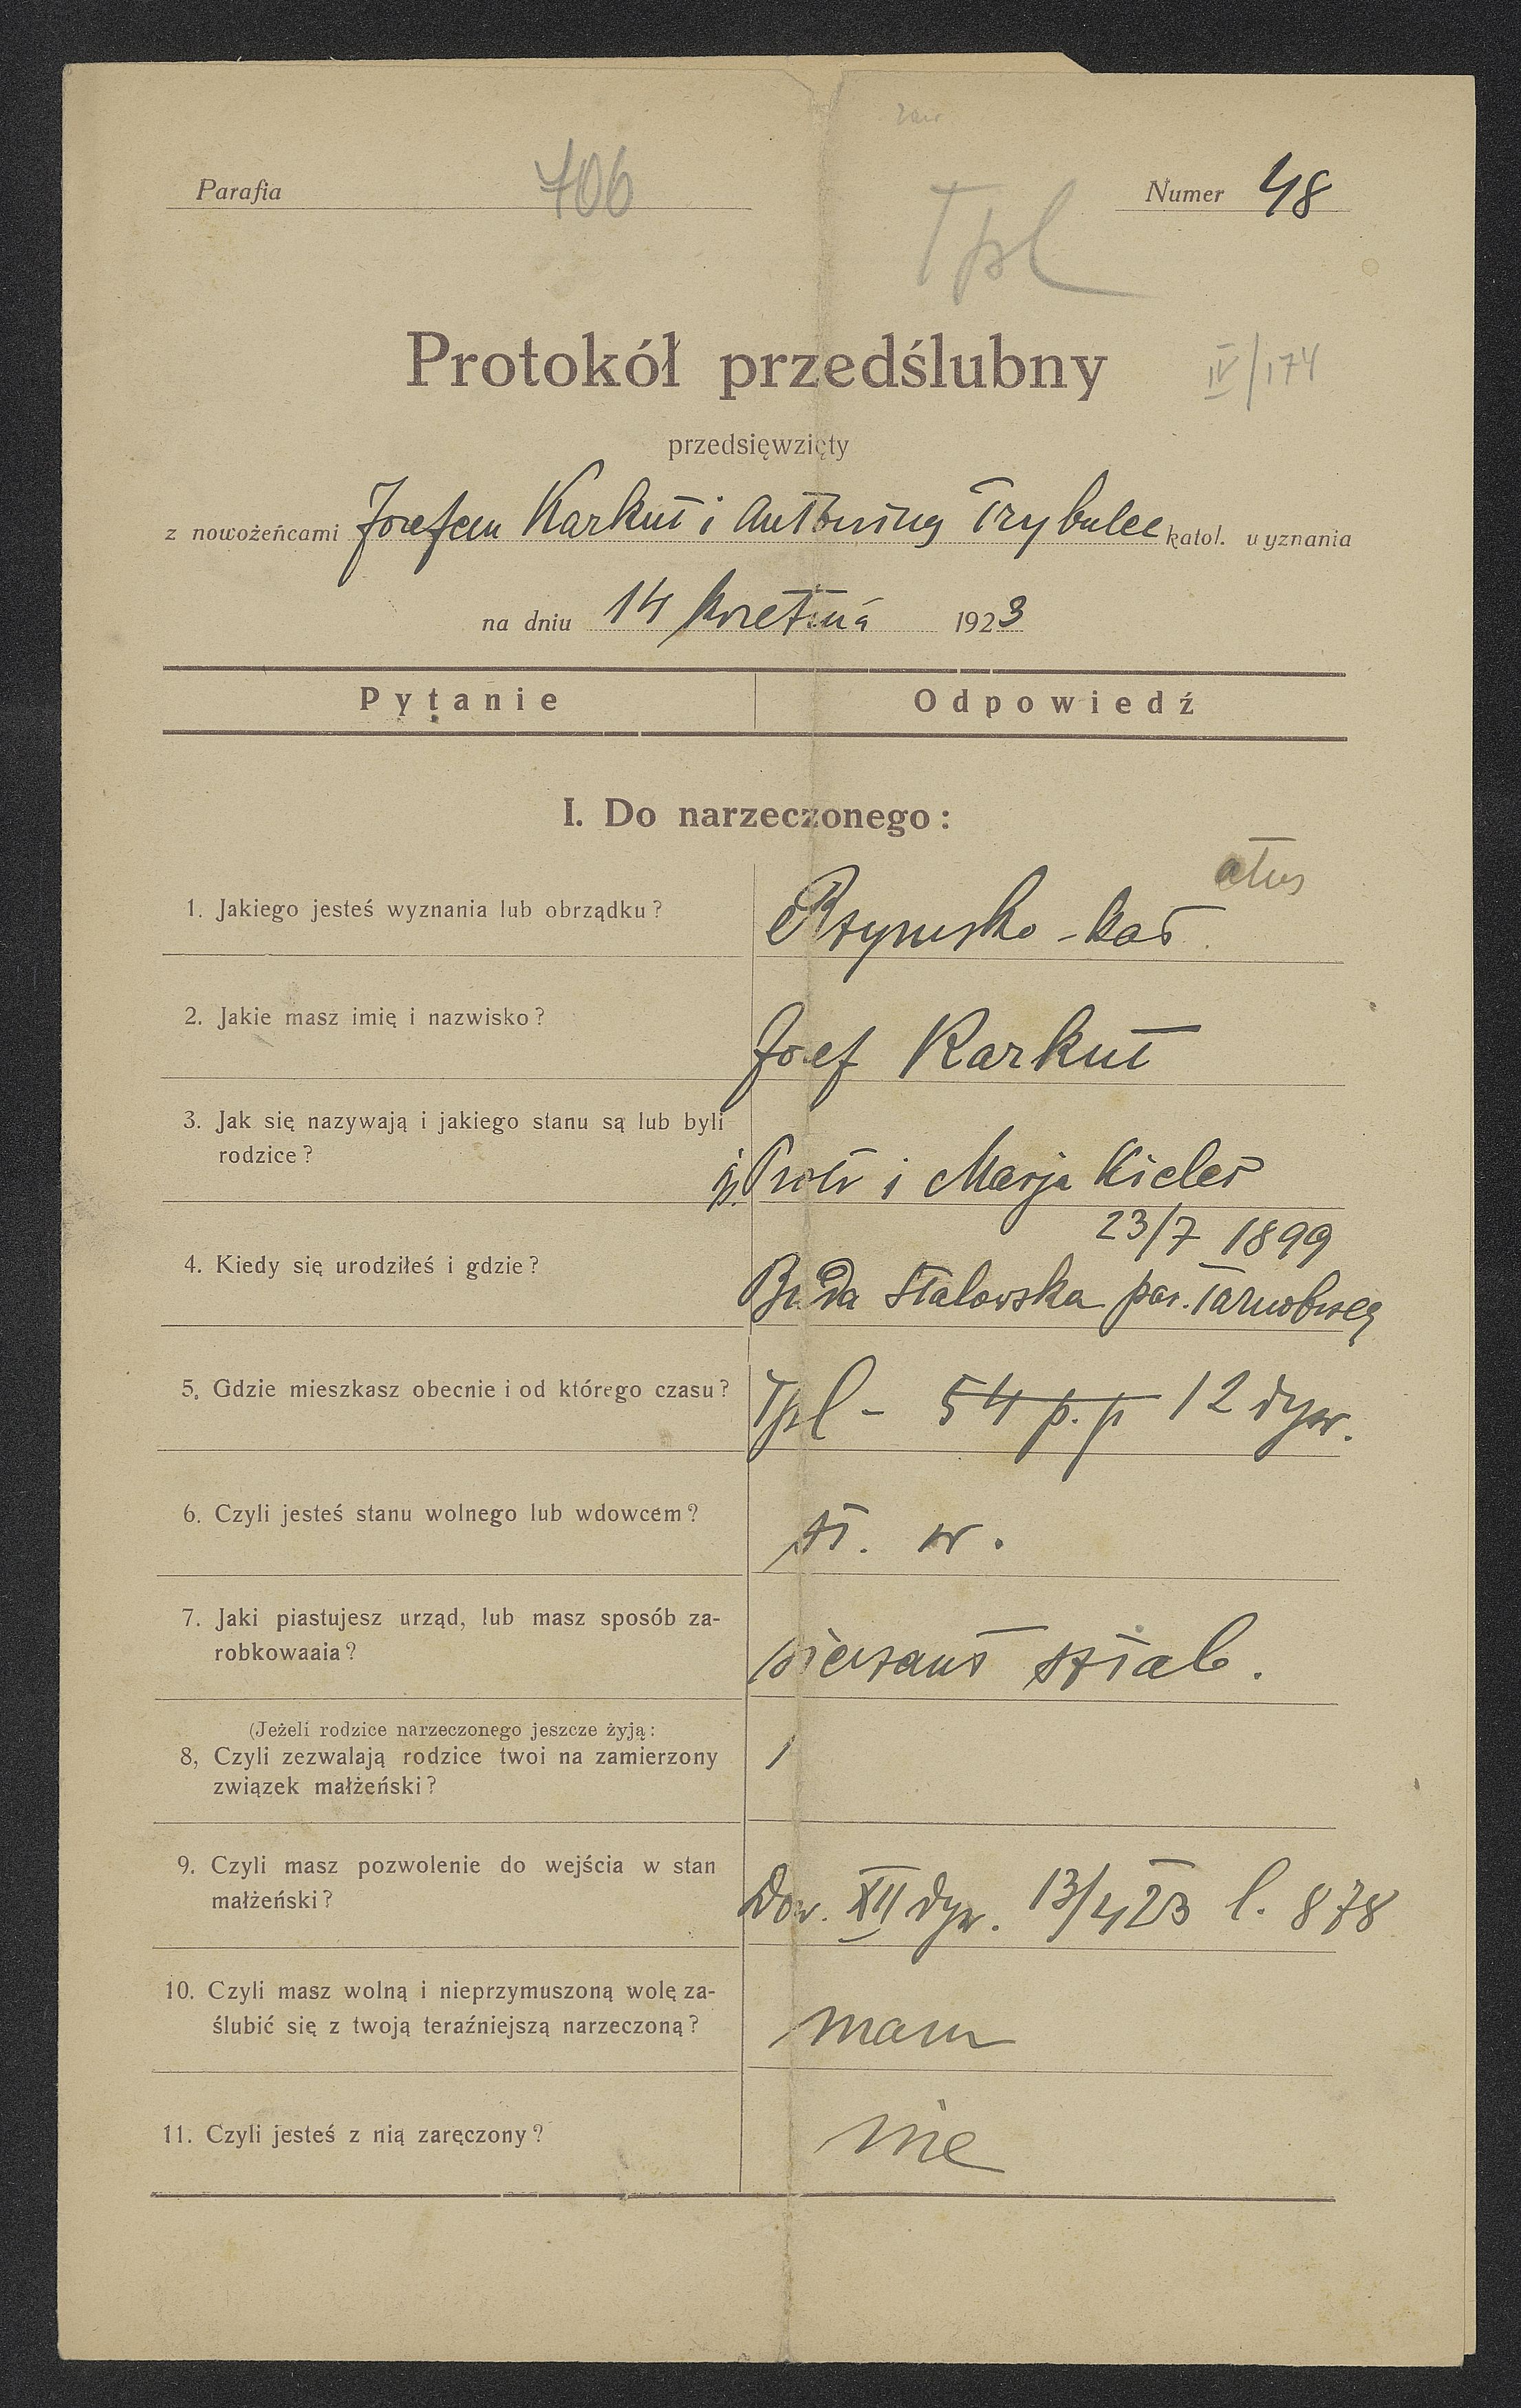 Parafia 706 Numer 48
Tpl
Protokół przedślubny
IV/174
przedsięwzięty
z nowożeńcami Józefem Karkut i Antoniną Trybulec katol. wyznania
na dniu 14 kwietnia 1923
Pytanie Odpowiedź
I. Do narzeczonego:
1. Jakiego jesteś wyznania lub obrządku? Rzymsko-kat.
2. Jakie masz imię i nazwisko? Józef Karkut
3. Jak się nazywają i jakiego stanu są lub byli
rodzice? Piotr i Marja Kieleś
23/7 1899
4. Kiedy się urodziłeś i gdzie?
Buda Stalowska par. Tarnobrzeg
5. Gdzie mieszkasz obecnie i od którego czasu? Tpl - 54 p.p 12 dyw.
6. Czyli jesteś stanu wolnego lub wdowcem? st. w.
7. Jaki piastujesz urząd, lub masz sposób za-
robkowaaia? sierżant sztab.
(Jeżeli rodzice narzeczonego jeszcze żyją:
8, Czyli zezwalają rodzice twoi na zamierzony
związek małżeński?
9. Czyli masz pozwolenie do wejścia w stan
małżeński? Dow. XII dyw. 13/4 23 l. 878
10. Czyli masz wolną i nieprzymuszoną wolę za-
ślubić się z twoją teraźniejszą narzeczoną? mam
11. Czyli jesteś z nią zaręczony? nie